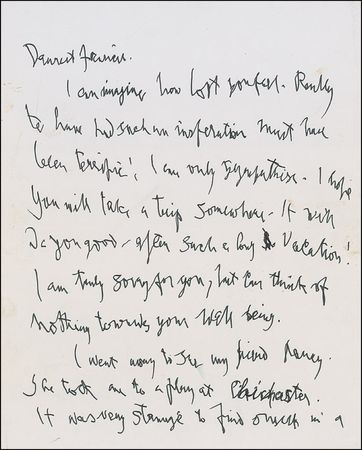 Dearest Francis.
I can imagine how lost you feel. Really
to have had such an inspiration must have
been terrific! I can only sympathise. I hope
you will take a trip somewhere - It will
do you good - after such a long vacation!
I am truly sorry for you, but can think of
nothing towards your well being.
I went away to see my friend
She took me to a play at Chichester.
It was very strange to find oneself in a